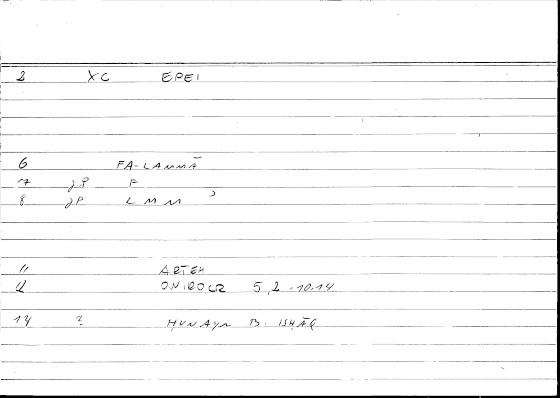 2 XC EPEI
6 FA-LAMMĀ
7 JP F
8 JP L M M ʾ
11 ARTEM
12 ONIROCR 5,2 -10.14
14 ? HUNAYN B. ISHĀQ